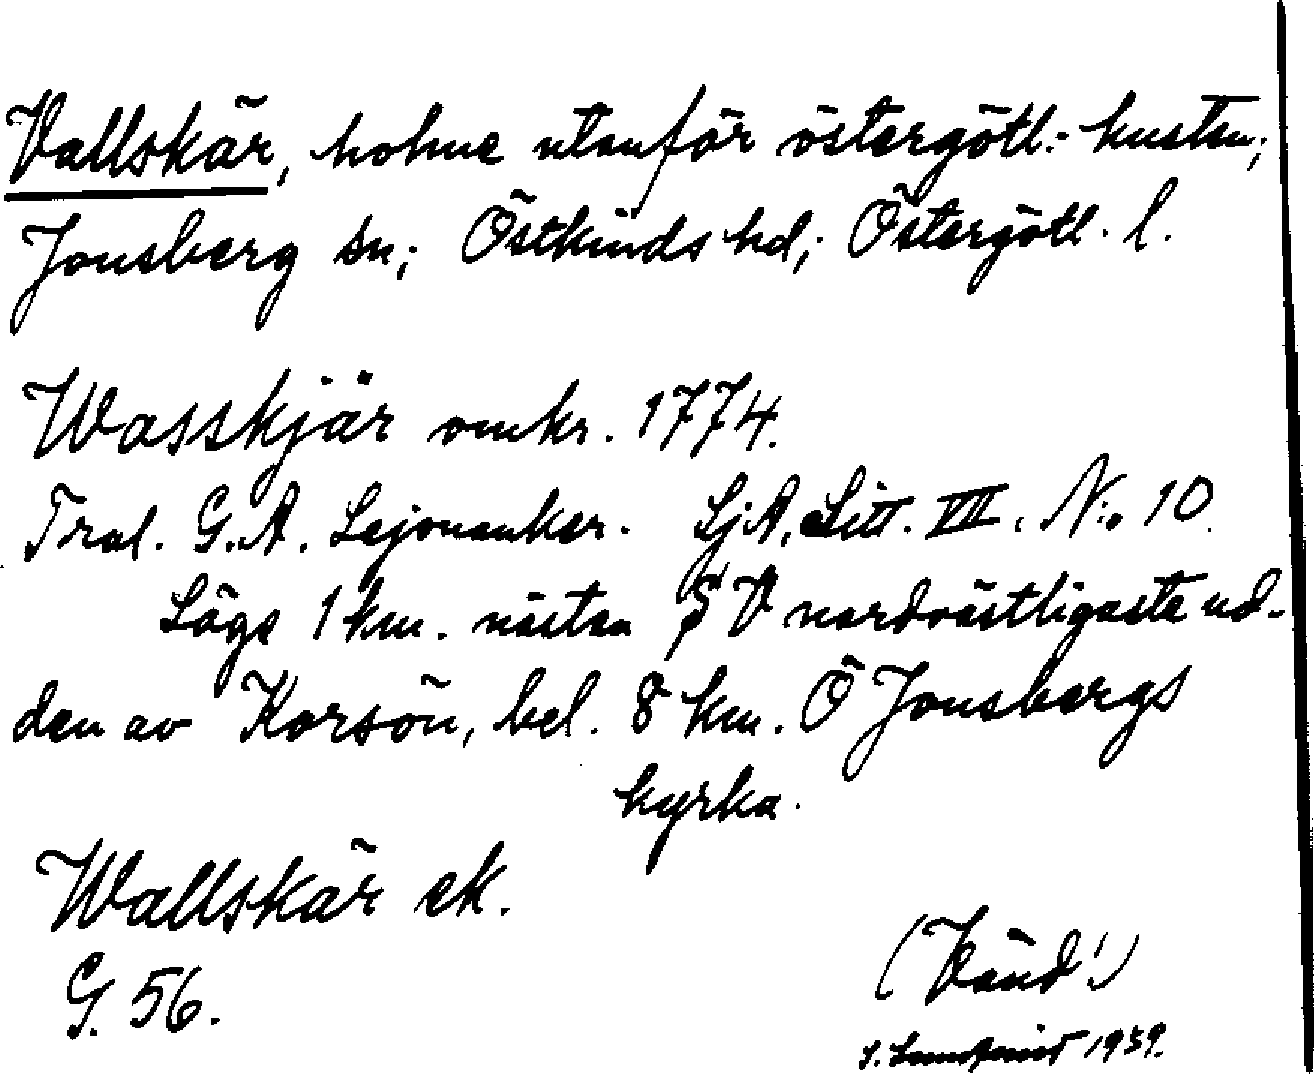 Vallskär, holme utanför östergötl. kusten;
Jonsberg sn; Östkinds hd; Östergötl. l.
Wasskjär omkr. 1774.
Tral. G.A. Lejonanker. Sj.A. Litt. VII. No. 10.
Läge 1 km. nästan SV nordvästligaste ud-
den av Korsön, bel. 8 km. Ö Jonsbergs
kyrka.
Wallskär ek.
G. 56.
(Vänd!)
1939.